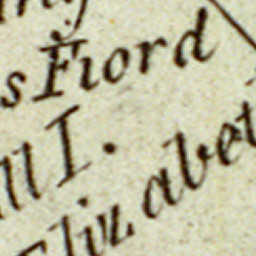 s Fiord
ll I.
Eliz abet